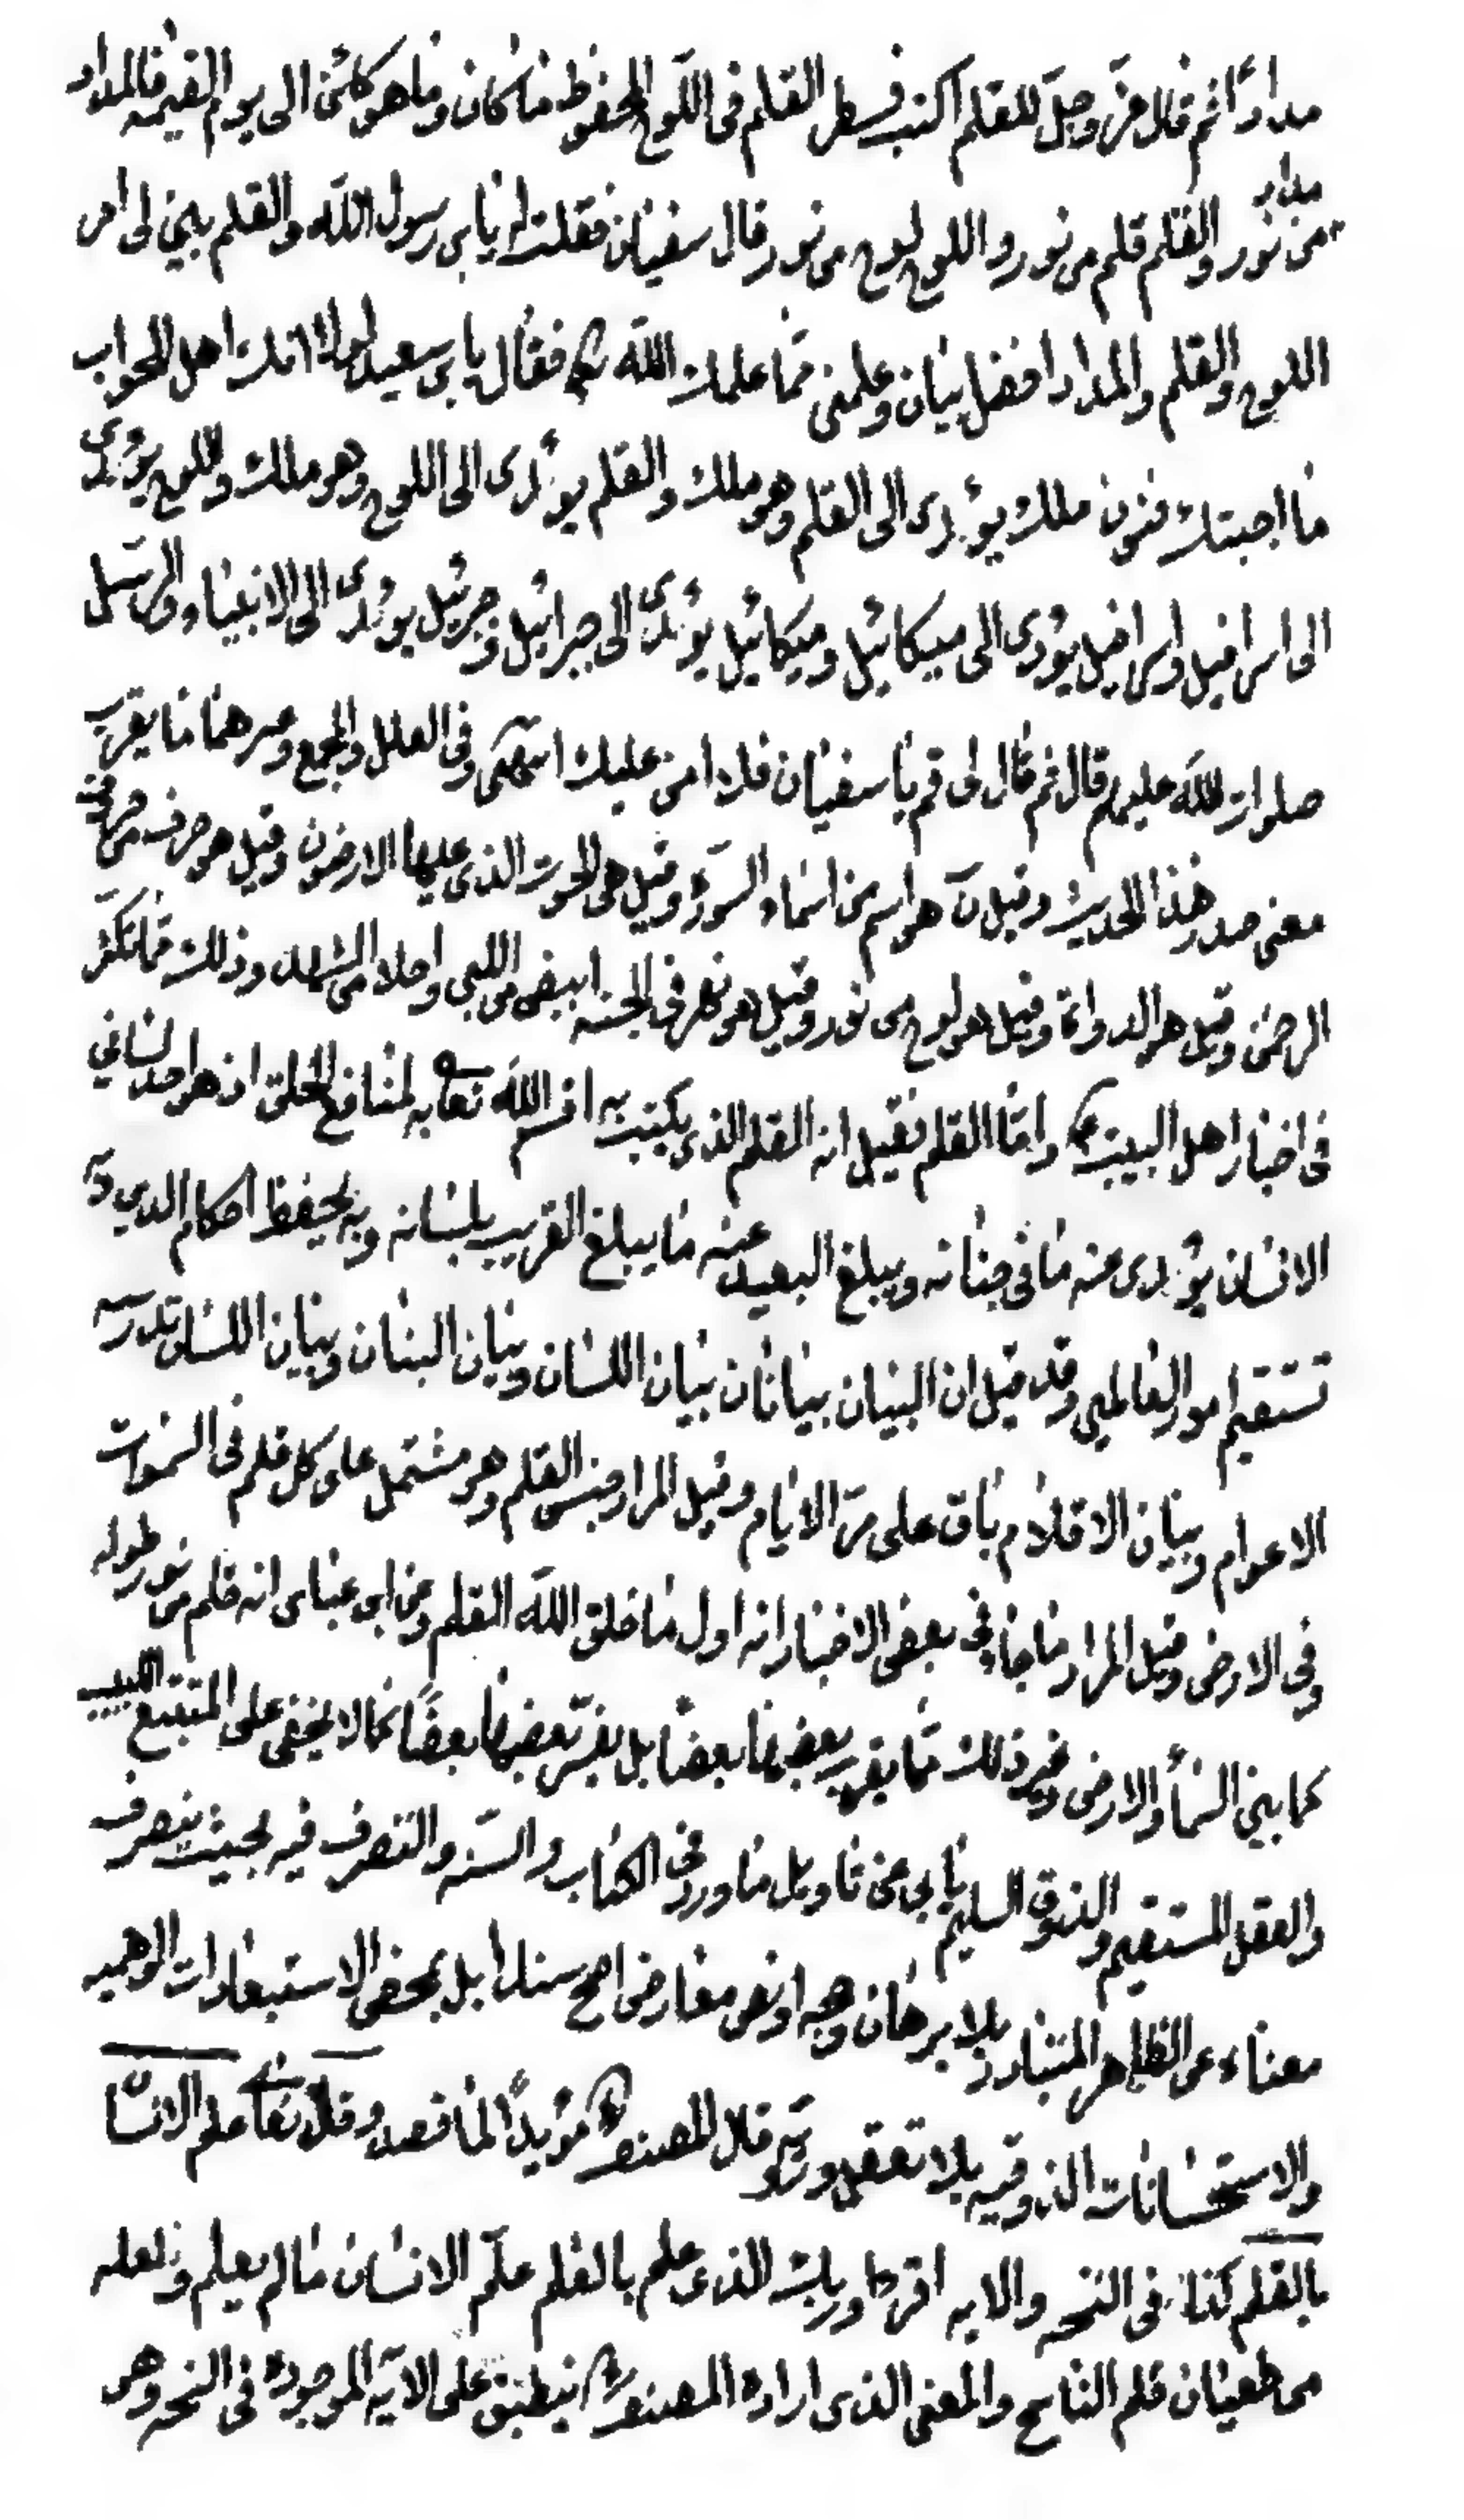 مدادًا ثم قال عزّ وجلّ للقلم اكتب فسطر القلم فى اللّوح المحفوظ ما كان وما هو كائن الى يوم القيمة فالمداد
مداد
من نور والقلم قلم من نور واللوح لوح من نور قال سفيان فقلت له يا بن رسول الله والقلم بيّن لى امر
اللوح والقلم والمداد افضل بيان وعلمنى ممّا علمك الله فقال يا بن سعيد لولا انك اهل للجواب
ما اجبتك فنون ملك يؤدى الى القلم وهو ملك والقلم يؤدى الى اللوح وهو ملك واللوح يؤدى
الى اسرافيل واسرافيل يؤدى الى ميكائيل وميكائيل يؤدى الى جبرائيل وجبرئيل يؤدى الى الانبياء والرسل
صلوات الله عليهم قال ثم قال لى قم يا سفيان فلا امن عليك انتهى وفى العلل والمجمع وغيرهما ما يقرب
معنى صدر هذا الحديث وقيل نٓ هو اسم من اسماء السورة وقيل هى الحوت الذى عليها الارضون وقيل هو حرف من حروف
الرحمن وقيل هو الدواة وقيل هو لوح من نور وقيل هو نهر فى الجنة ابيض من اللبن واحلا من الشهد وذلك ممّا تكثر
فى اخبار اهل البيت وامّا القلم فقيل انه القلم الذى يكتب به اقسم الله تعا به لمنافع الخلق اذ هو احد لسانى
الانسان يؤدى عنه ما فى جنانه ويبلغ البعيد عنه ما يبلغ القريب بلسانه وبه يحفظ احكام الدين وبه
تستقيم امور العالمين وقد قيل ان البيان بيانان بيان اللسان وبيان البنان وبيان اللسان تدرسه
الاعوام وبيان الاقلام باق على مرّ الايام وقيل المراد جنس القلم وهو مشتمل على كل قلم فى السموات
وفى الارض وقيل المراد ما جاء فى بعض الاخبار انه اول ما خلق الله القلم وعن ابن عباس انه قلم من نور طوله
كما بين السماء والارض وغير ذلك ممّا يقرب بعضها بعضًا بل يفسّر بعضها بعضًا كما لا يخفى على المتتبع اللبيب
والعقل المستقيم والذوق السليم يابى عن تاويل ما ورد فى الكتاب والسنة والتصرف فيه بحيث ينصرف
معناه عن الظاهر المتبادر بلا برهان وجيه او نص معارض اصح سندا بل بمحض الاستبعادات الوهميه
والاستحسانات الذوقيه بلا تعقل ورويّة وقال المصنف مؤيدًا لما قصده وقال تعا علم الانسان
بالقلم كذا فى النسخه والايه اقرء وربك الذى علم بالقلم علّم الانسان ما لم يعلم ولعله
من طغيان قلم الناسخ والمعنى الذى اراده المصنف ينطبق على الآية الموجودة فى النسخه وهو